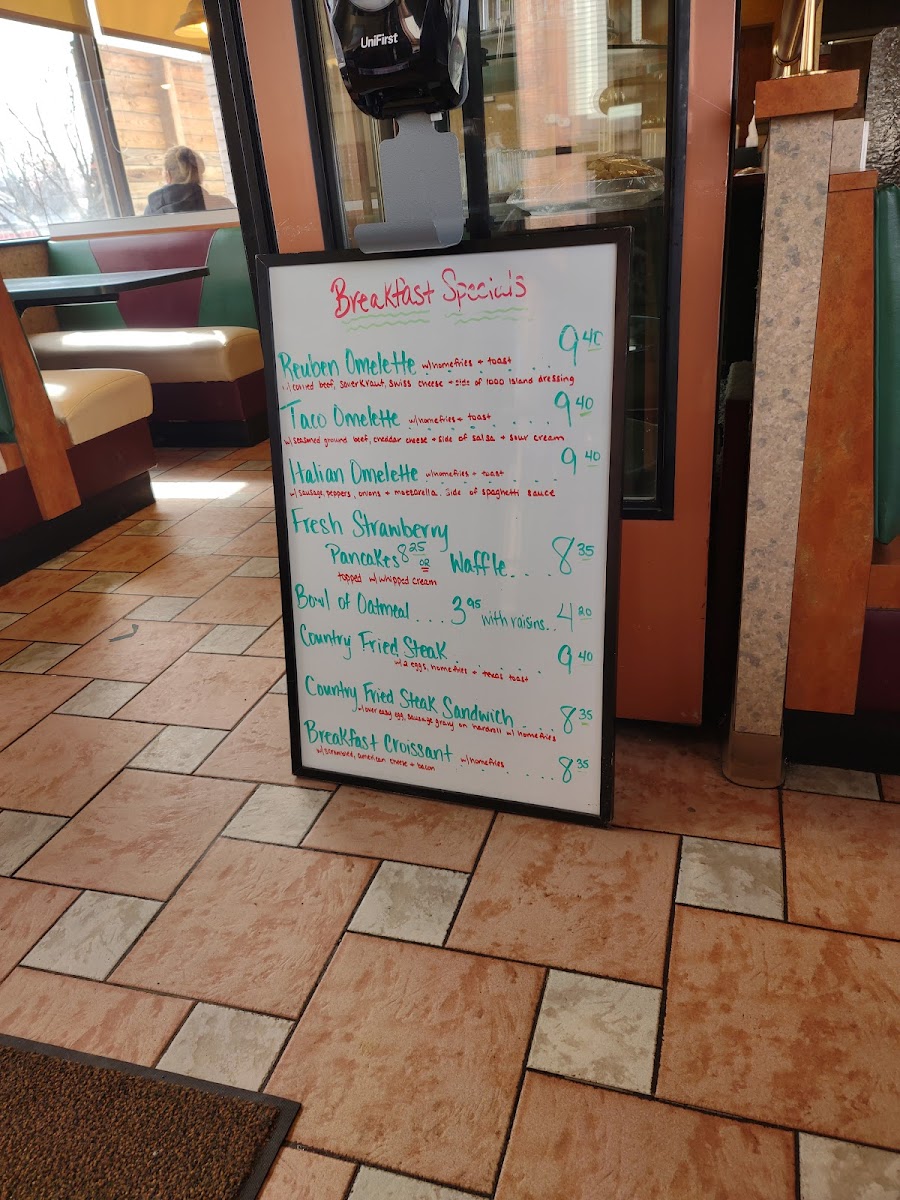 UniFirst
Breakfast Specials
Reuben Omelette w/homefries + toast 9 40
w/ corned beef, sauerkraut, swiss cheese + side of 1000 island dressing
Taco Omelette w/homefries + toast ..... 9 40
w/ seasoned ground beef, cheddar cheese + side of salsa + sour cream
Italian Omelette w/homefries + toast 9 40
w/ sausage, peppers, onions + mozzarella. side of spaghetti sauce
Fresh Strawberry
Pancakes 8 25 or Waffle.... 8 35
topped w/ whipped cream
Bowl of Oatmeal ... 3 95 with raisins.. 4 20
Country Fried Steak 9 40
w/2 eggs, homefries + texas toast
Country Fried Steak Sandwich .... 8 35
w/over easy egg, sausage gravy on hardroll w/ homefries
Breakfast Croissant w/homefries .... 8 35
w/scrambled, american cheese + bacon